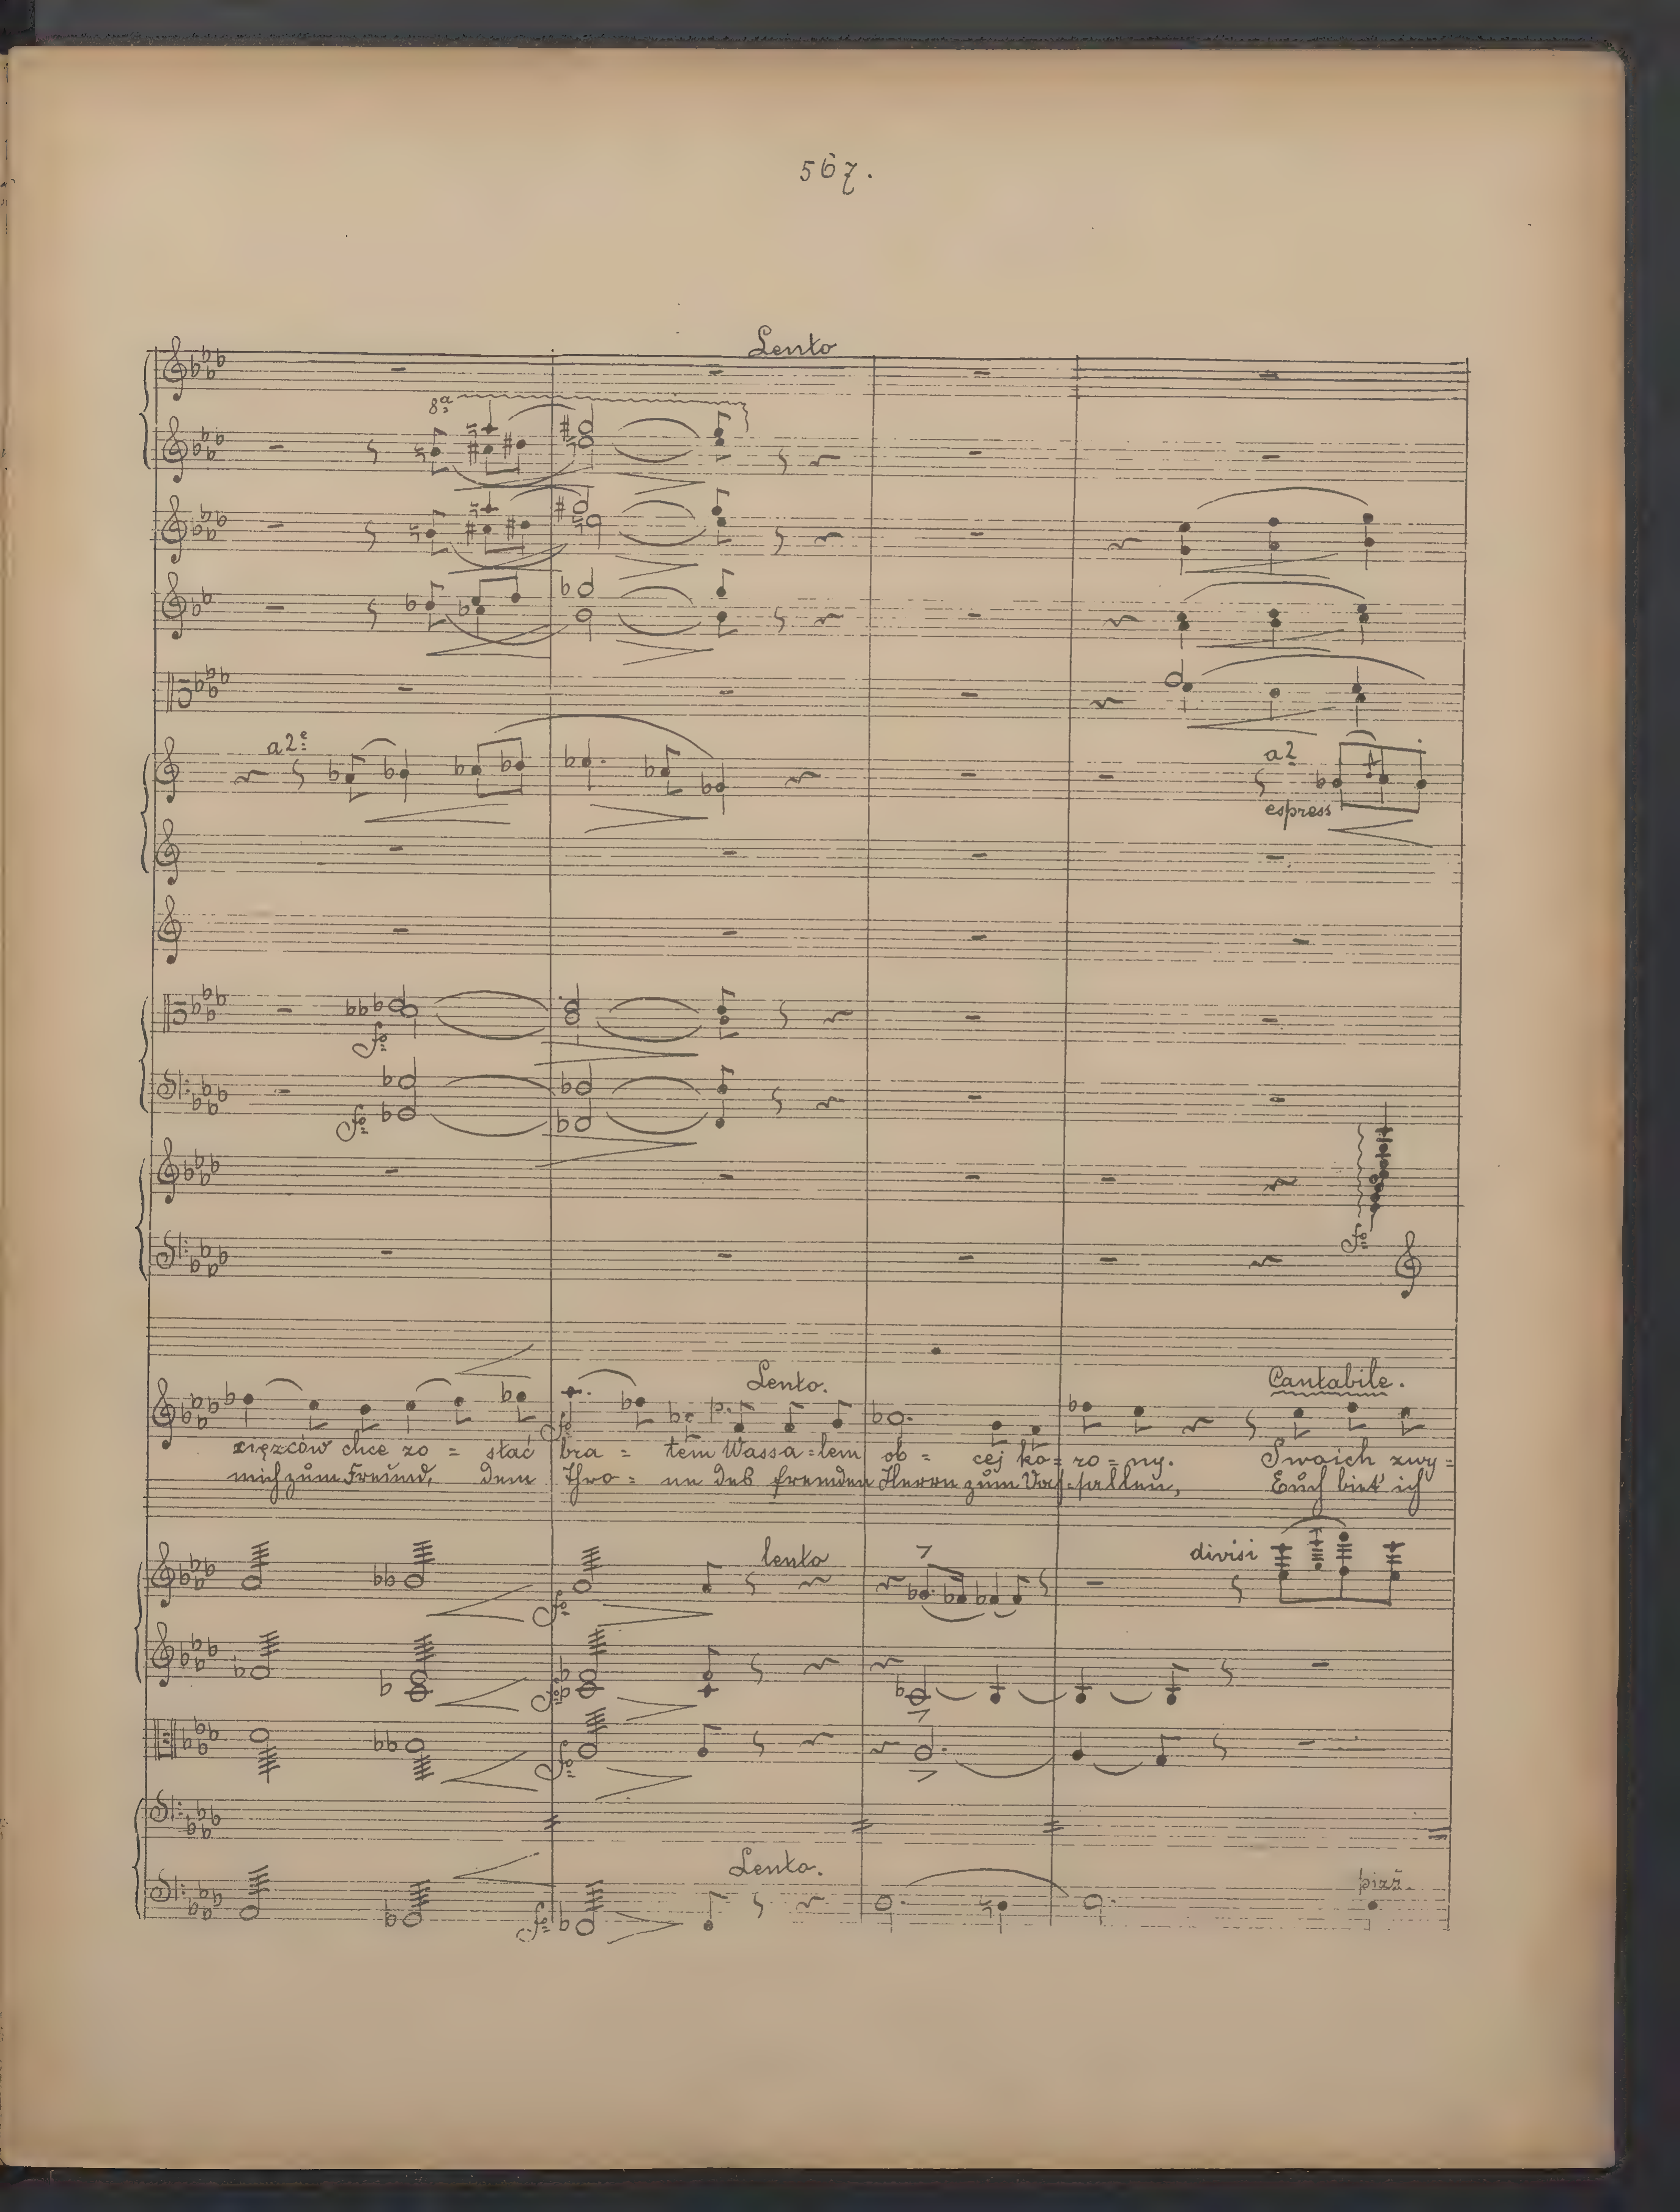 567.
Lento
8ª
a2º
a2
espress
fo
fo
fo
Lento.
Cantabile.
fo
zięzców chce zo = stać bra = tem Wassa = lem ob = cej ko = ro = ny. Swoich zwy =
mich zum Freund, dem Thro = ne des fremden Herrn zum Vas = sallen, Euch biet' ich
lento
divisi
fo
fo
fo
Lento.
pizz.
fo